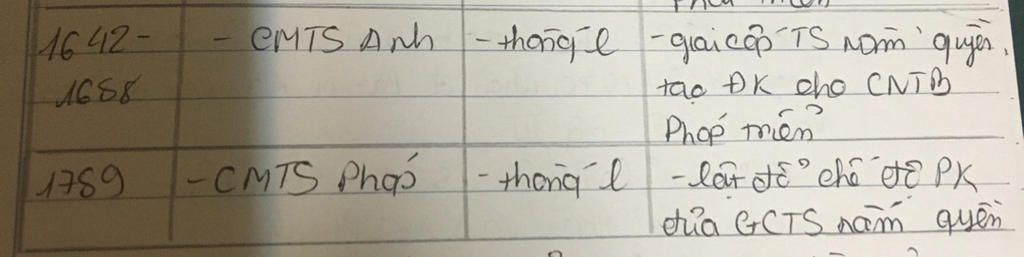 1642- - CMTS Anh - thắng l - giai cấp TS nắm quyền,
1688 tạo ĐK cho CNTB
Phát triển
1789 - CMTS Pháp - thắng l - lật đổ chế độ PK
đưa GCTS nắm quyền